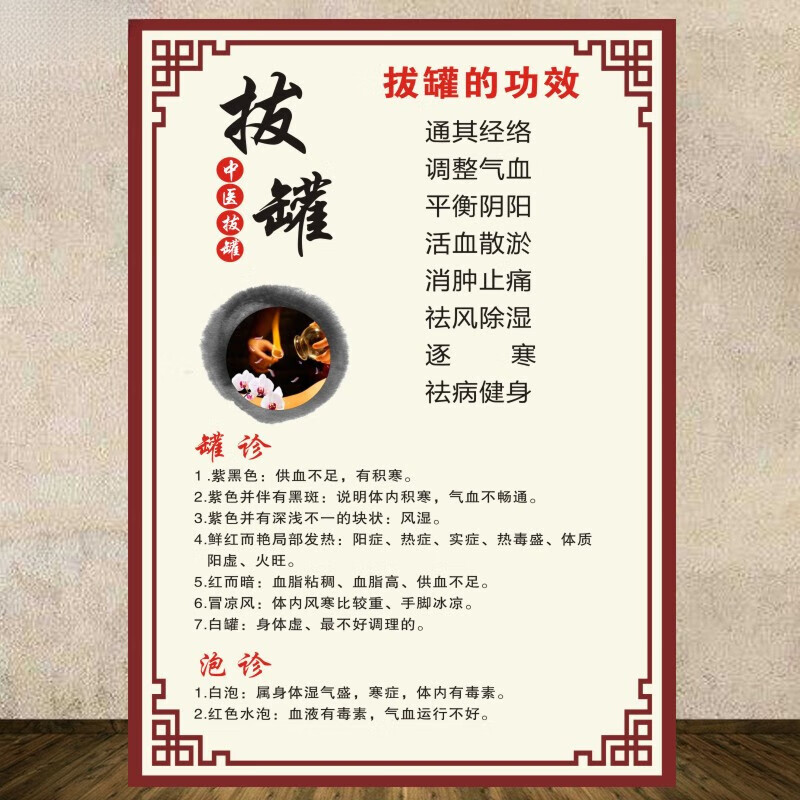 拔罐
中医拔罐
拔罐的功效
通其经络
调整气血
平衡阴阳
活血散淤
消肿止痛
祛风除湿
逐 寒
祛病健身
罐诊
1.紫黑色：供血不足，有积寒。
2.紫色并伴有黑斑：说明体内积寒，气血不畅通。
3.紫色并有深浅不一的块状：风湿。
4.鲜红而艳局部发热：阳症、热症、实症、热毒盛、体质
阳虚、火旺。
5.红而暗：血脂粘稠、血脂高、供血不足。
6.冒凉风：体内风寒比较重、手脚冰凉。
7.白罐：身体虚、最不好调理的。
泡诊
1.白泡：属身体湿气盛，寒症，体内有毒素。
2.红色水泡：血液有毒素，气血运行不好。